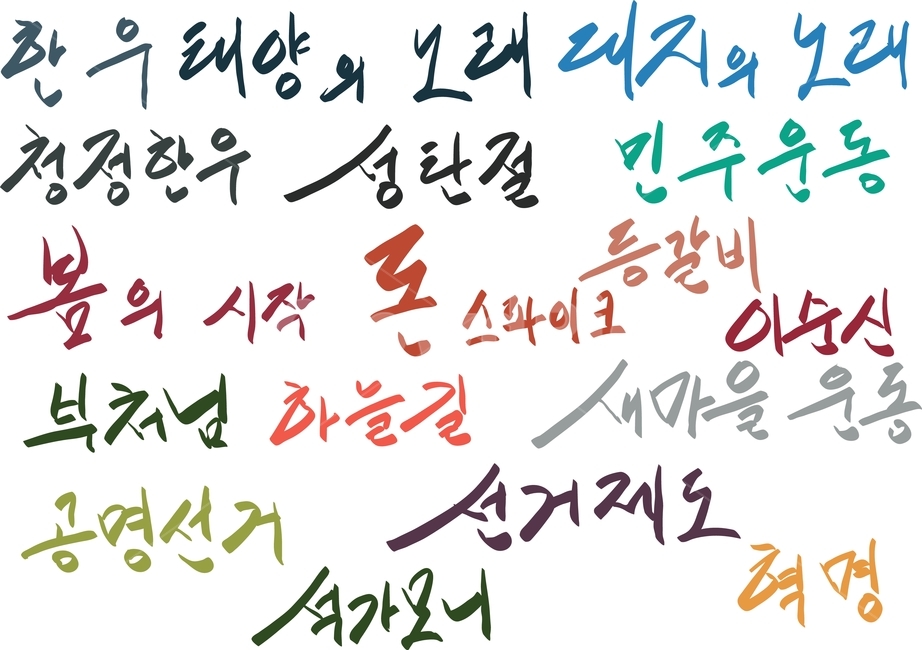 한우 태양의 노래 대지의 노래
청정한우 성탄절 민주운동
봄의 시작 돈 스파이크 등갈비 이순신
부처님 하늘길 새마을 운동
공명선거 선거제도
석가모니 혁명